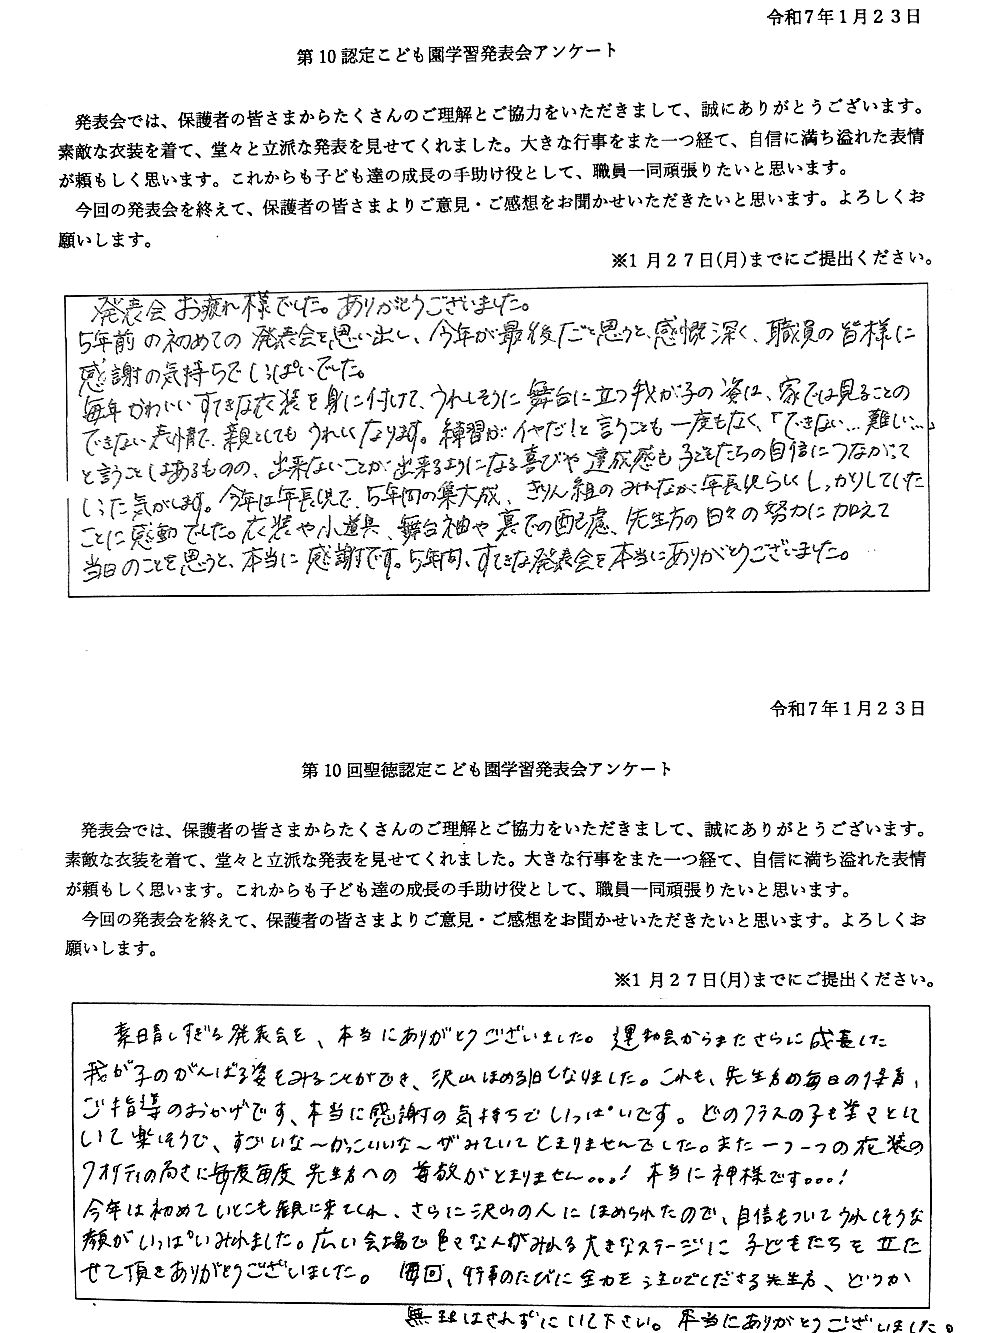 令和7年1月23日
第10認定こども園学習発表会アンケート
発表会では、保護者の皆さまからたくさんのご理解とご協力をいただきまして、誠にありがとうございます。
素敵な衣装を着て、堂々と立派な発表を見せてくれました。大きな行事をまた一つ経て、自信に満ち溢れた表情
が頼もしく思います。これからも子ども達の成長の手助け役として、職員一同頑張りたいと思います。
今回の発表会を終えて、保護者の皆さまよりご意見・ご感想をお聞かせいただきたいと思います。よろしくお
願いします。
※1月27日(月)までにご提出ください。
発表会お疲れ様でした。ありがとうございました。
5年前の初めての発表会を思い出し、今年が最後だと思うと、感慨深く、職員の皆様に
感謝の気持ちでいっぱいでした。
毎年かわいいすてきな衣装を身に付けて、うれしそうに舞台に立つ我が子の姿は、家では見ることの
できない表情で、親としてもうれしくなります。練習がイヤだ!と言うことも一度もなく、「できない…難しい…」
と言うことはあるものの、出来ないことが出来るようになる喜びや達成感も子どもたちの自信につながって
いった気がします。今年は年長児で、5年間の集大成、きりん組のみんなが年長児らしくしっかりしていた
ことに感動でした。衣装や小道具、舞台袖や裏での配慮、先生方の日々の努力に加えて
当日のことを思うと、本当に感謝です。5年間、すてきな発表会を本当にありがとうございました。
令和7年1月23日
第10回聖徳認定こども園学習発表会アンケート
発表会では、保護者の皆さまからたくさんのご理解とご協力をいただきまして、誠にありがとうございます。
素敵な衣装を着て、堂々と立派な発表を見せてくれました。大きな行事をまた一つ経て、自信に満ち溢れた表情
が頼もしく思います。これからも子ども達の成長の手助け役として、職員一同頑張りたいと思います。
今回の発表会を終えて、保護者の皆さまよりご意見・ご感想をお聞かせいただきたいと思います。よろしくお
願いします。
※1月27日(月)までにご提出ください。
素晴しすぎる発表会を、本当にありがとうございました。運動会からまたさらに成長した
我が子のがんばる姿をみることができ、沢山ほめる日となりました。これも、先生方の毎日の保育、
ご指導のおかげです、本当に感謝の気持ちでいっぱいです。どのクラスの子も堂々として
いて楽しそうで、すごいな〜かっこいいな〜がみていてとまりませんでした。また一つ一つの衣装の
クオリティの高さに毎度毎度先生方への尊敬がとまりません...!本当に神様です...!
今年は初めていとこも観に来てくれ、さらに沢山の人にほめられたので、自信もついてうれしそうな
顔がいっぱいみれました。広い会場で色々な人がみれる大きなステージに子どもたちを立た
せて頂きありがとうございました。毎回、行事のたびに全力を注いでくださる先生方、どうか
無理はされずにいて下さい。本当にありがとうございました。